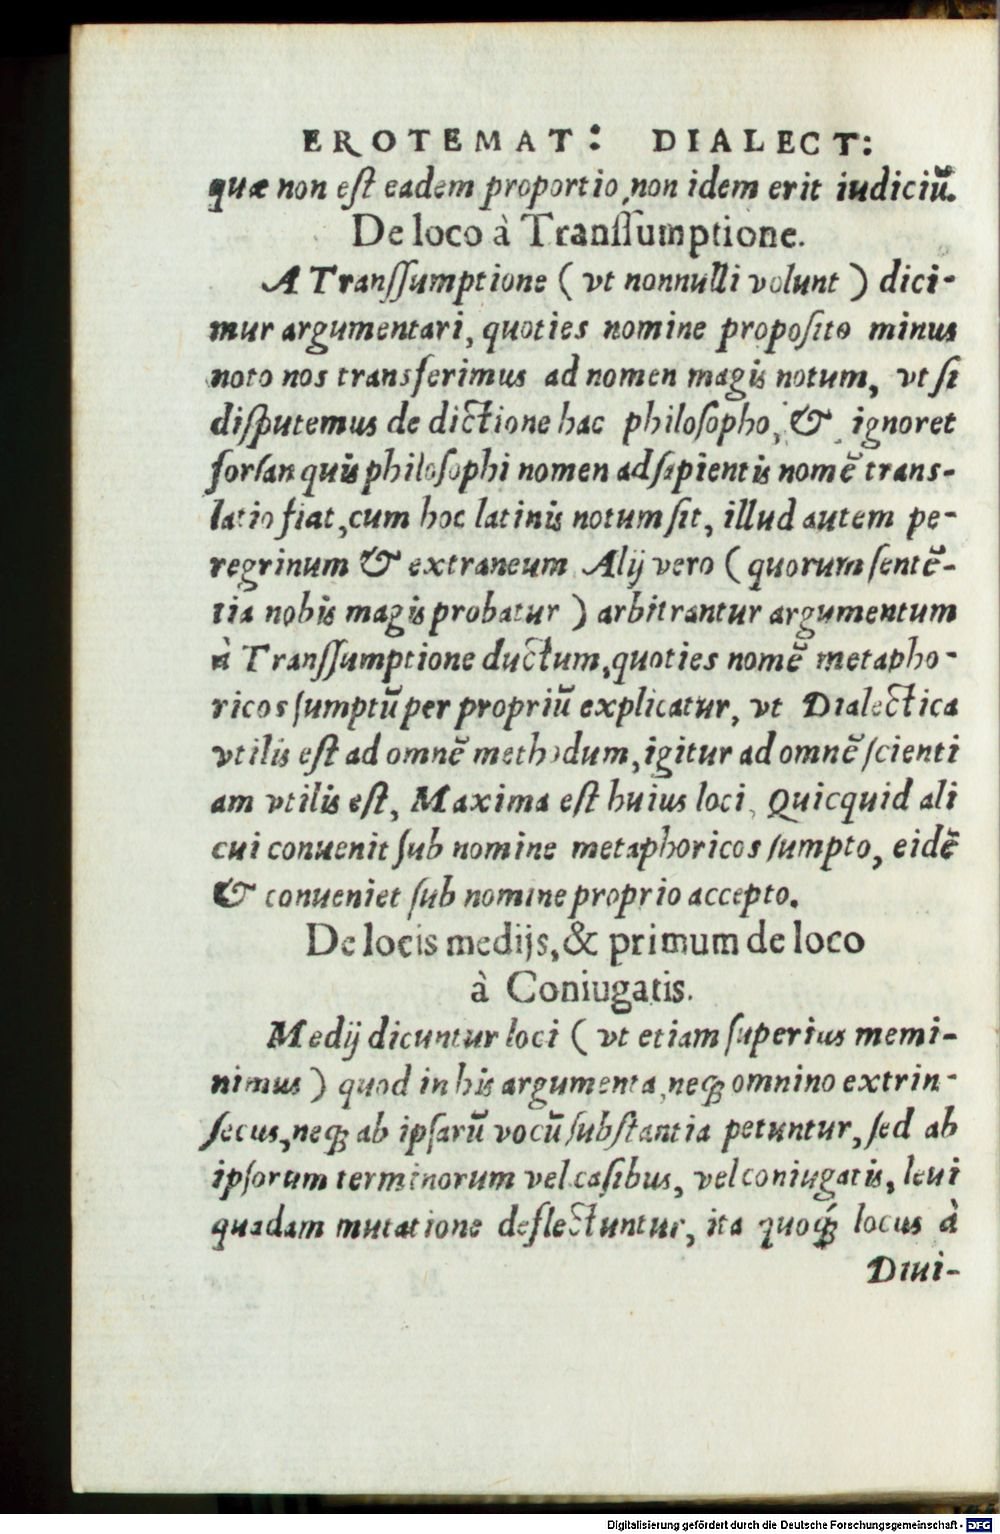 EROTEMAT: DIALECT:
quæ non eſt eadem proportio, non idem erit iudiciũ.
De loco à Tranſſumptione.
A Tranſſumptione ( vt nonnulli volunt ) dici-
mur argumentari, quoties nomine propoſito minus
noto nos transferimus ad nomen magis notum, vt ſi
diſputemus de dictione hac philoſopho, & ignoret
forſan quis philoſophi nomen ad ſapientis nomẽ trans-
latio fiat, cum hoc latinis notum ſit, illud autem pe-
regrinum & extraneum Alij vero ( quorum ſentẽ-
tia nobis magis probatur ) arbitrantur argumentum
à Tranſſumptione ductum, quoties nomẽ metapho-
ricos ſumptũ per propriũ explicatur, vt Dialectica
vtilis eſt ad omnẽ methodum, igitur ad omnẽ ſcienti
am vtilis eſt, Maxima eſt huius loci, Quicquid ali
cui conuenit ſub nomine metaphoricos ſumpto, eidẽ
& conueniet ſub nomine proprio accepto.
De locis medijs, & primum de loco
à Coniugatis.
Medij dicuntur loci ( vt etiam ſuperius memi-
nimus ) quod in his argumenta, neq; omnino extrin-
ſecus, neq; ab ipſarũ vocũ ſubſtantia petuntur, ſed ab
ipſorum terminorum vel caſibus, vel coniugatis, leui
quadam mutatione deflectuntur, ita quoq; locus à
Diui-
Digitalisierung gefördert durch die Deutsche Forschungsgemeinschaft - DFG